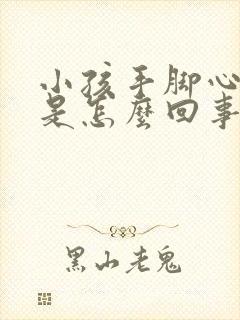 小孩手脚心
是怎麼回事
黑山老鬼